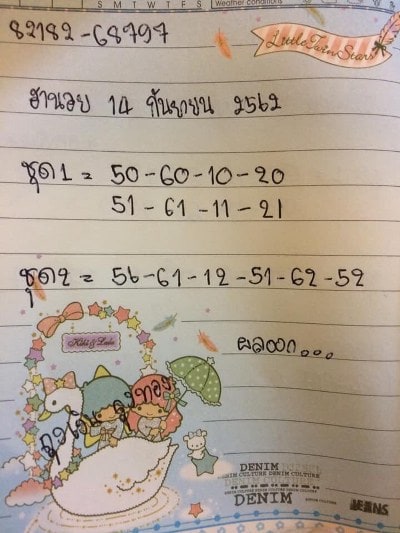 S M T W T F S Weather conditions
82182-68797
Little Twin Stars
ฮานอย 14 กันยายน 2562
ชุด1 = 50-60-10-20
51-61-11-21
ชุด2 = 56-61-12-51-62-52
ผลออก...
Kiki & Lala
ถุงเงินถุงทอง
DENIM
DENIM CULTURE DENIM CULTURE
DENIM
JEANS